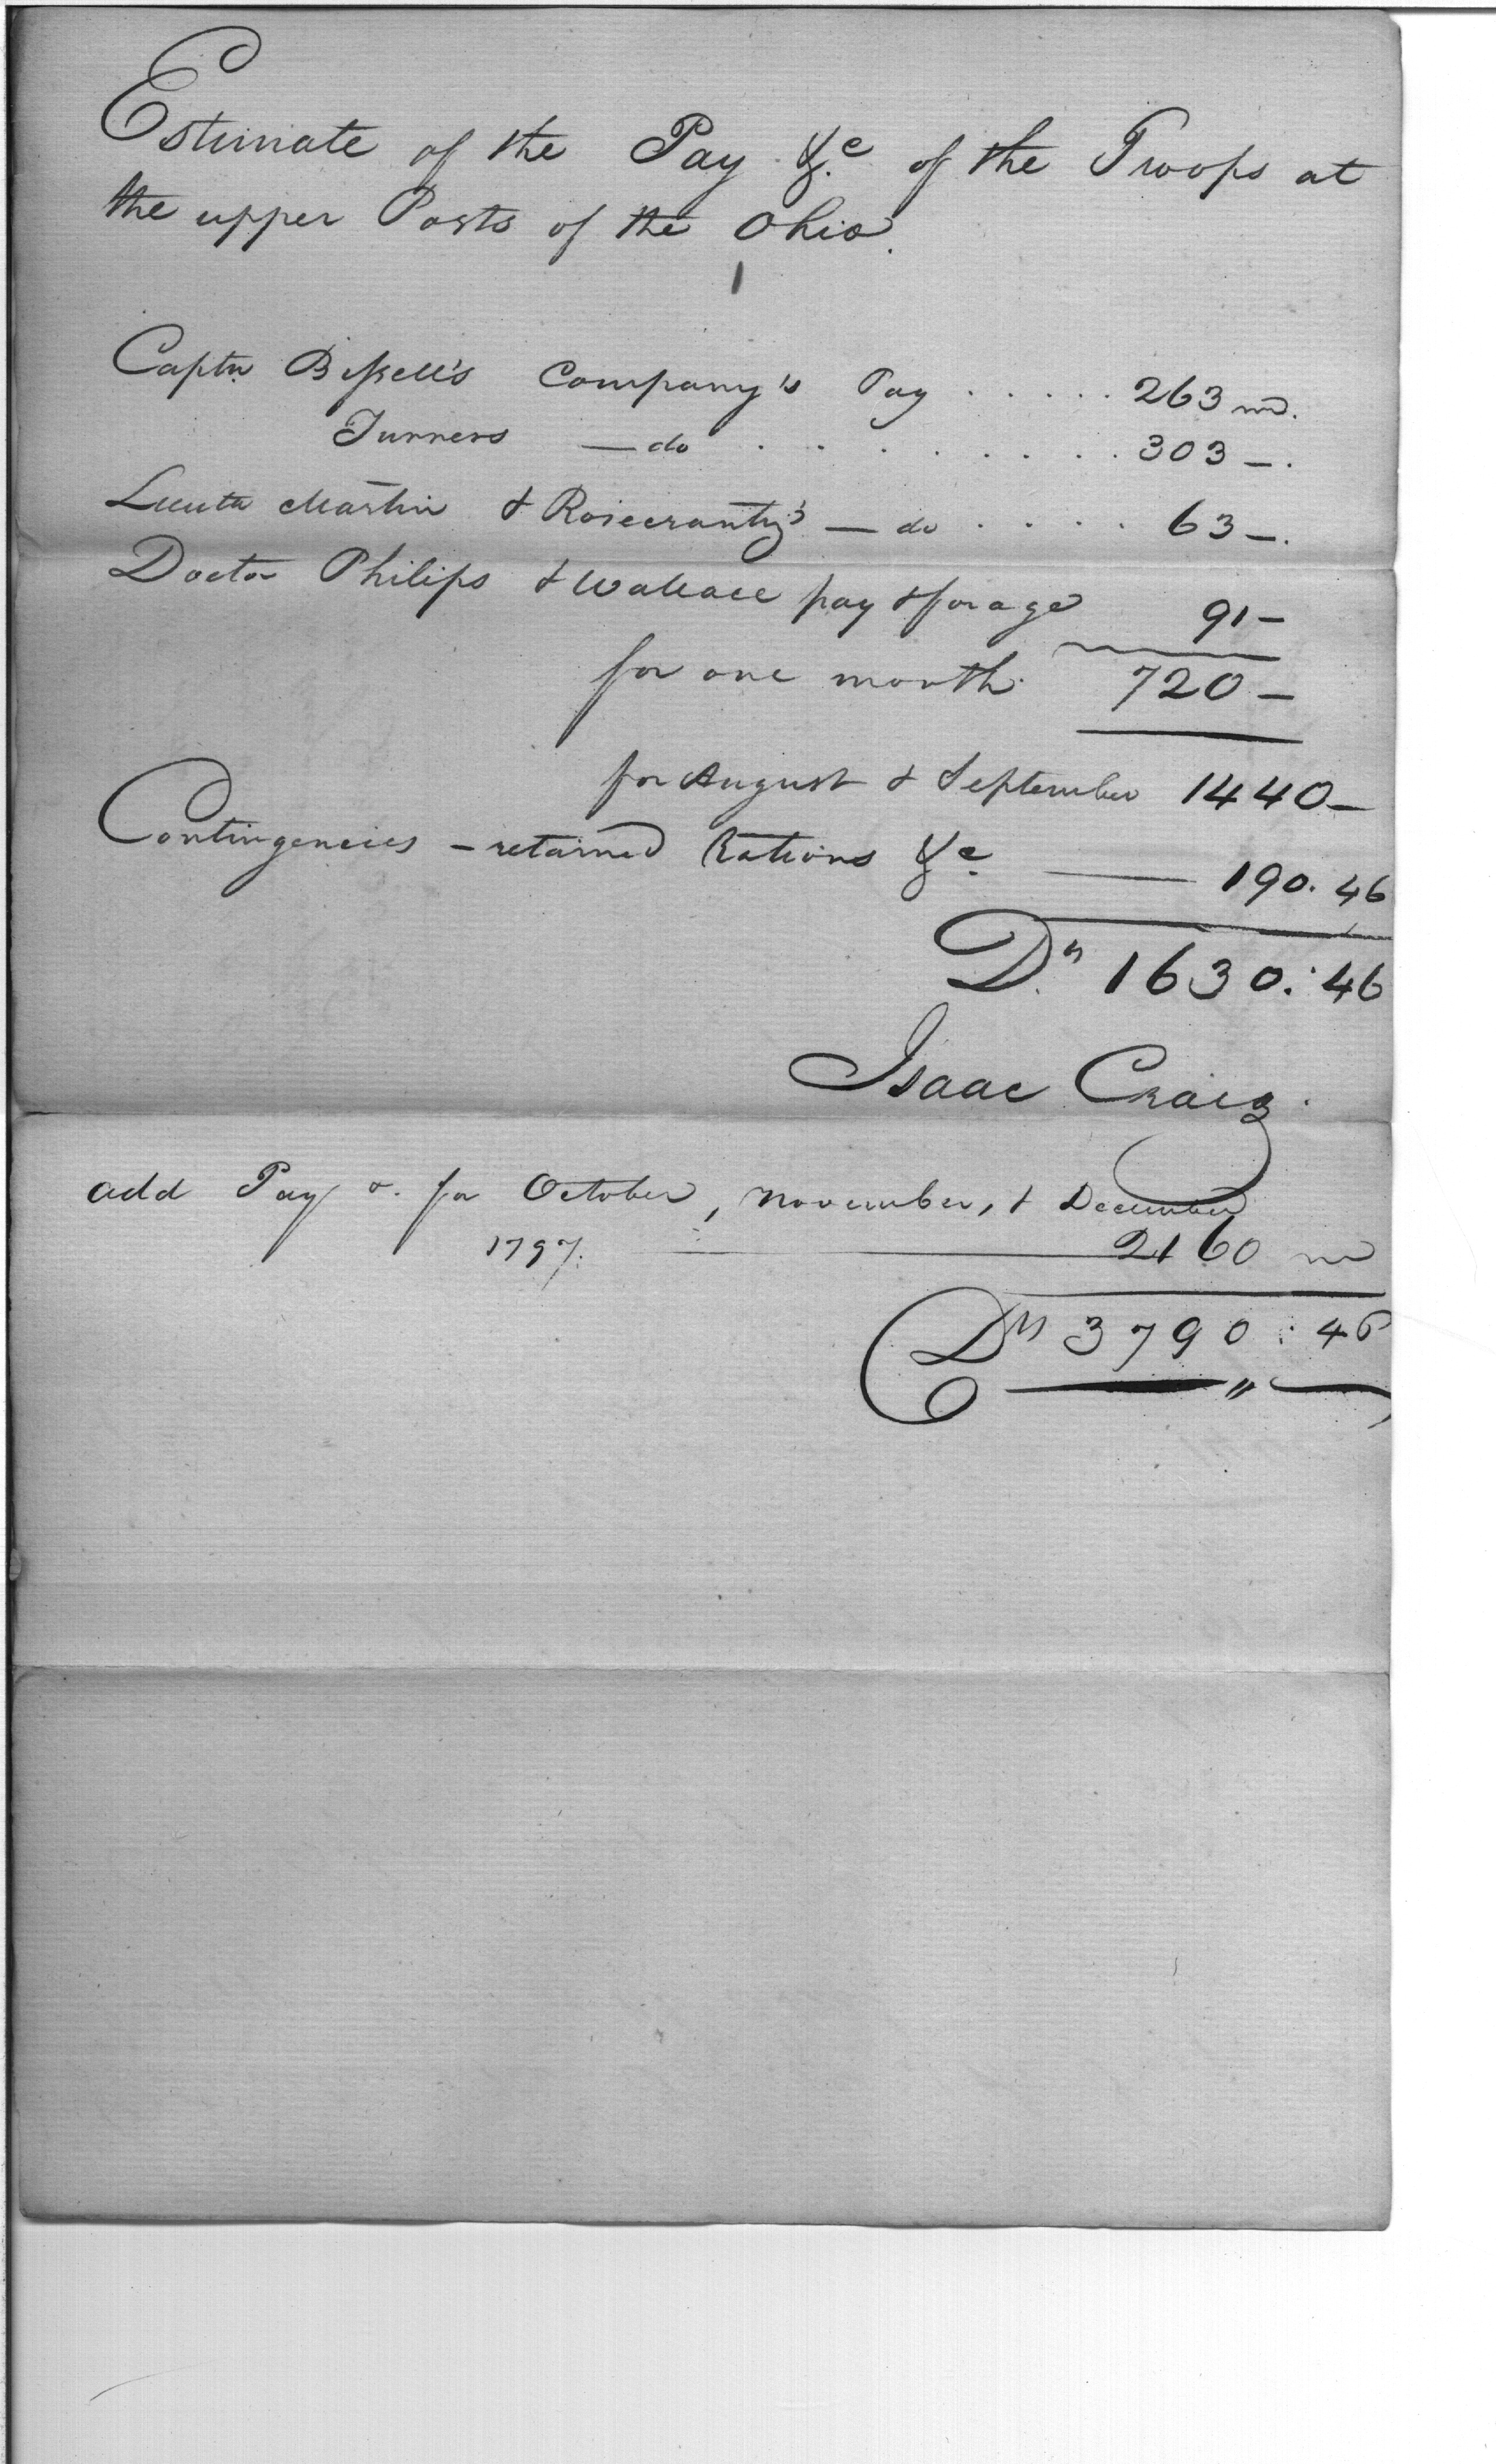 Estimate of the Pay &c. of the Troops at
the upper Posts of the Ohio.
Captn Bissell's Company's Pay . . . . . 263
Turners — do . . . . . . . 303 —.
Lieuts Martin & Rosecrantz's — do . . . . 63 —.
Doctor Philips & Wallace pay & forage 91 —
for one month. 720 —
for August & September 1440 —
Contingencies — retained Rations &c — 190. 46
Ds 1630: 46
Isaac Craig.
add Pay &. for October, November, & December
1797. — 2160
Ds 3790: 46